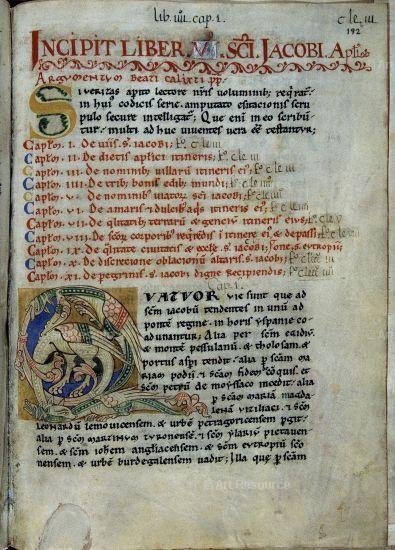 lib. iiii cap. 1.
clc iii
192
INCIPIT LIBER V S̄C̄I. IACOBI. Apłi
Argumentum Beati calixti pp
Si veritas apto lectore nr̄is voluminib; req̄rat᷑.
in hui codicis serie. amputato esitacionis scru
pulo secure intelligat᷑; Que eni in eo scribūn
tur. multi ad huc viventes vera eē testantur;
Capłm. I. De viis. s̄. iacobi;
Capłm. II. De dietis aplici itineris;
Capłm. III. De nominib; villarū itineris ei;
Capłm. IIII. De trib; bonis edib; mundi;
Capłm. V. De nominib; viator̄ sc̄i iacobi;
Capłm. VI. De amaris & dulcib; aq̄s itineris ei;
Capłm. VII. De q̄litatib; terrarū & genciū itineris eius;
Capłm. VIII. De sc̄or corporib; req̄rēdis i itinere ei; & de pass;
Capłm. IX. De q̄litate civitatis & eccłe. s̄. iacobi;
Capłm. X. De discrecione oblacionū altaris. s̄. iacobi;
Capłm. XI. De peregrinis. s̄. iacobi digne recipiendis;
Cap. 1.
QUATUOR vie sunt que ad
sc̄m iacobū tendentes in unū ad
pontē regine. in horis yspanie co
adunantur; Alia per sc̄m egidiū.
& montē pessulanū. & tholosam. &
portus aspi tendit. alia p sc̄am ma
riam podii. & sc̄am fidem cōq̄s. &
sc̄m petrū de moyssaco incedit. alia
p sc̄am mariā magda
lenā viziliaci. & sc̄m
leonardū lemovicensem. & urbē petragoricensem pgit.
alia p sc̄m martinum turonensē. & sc̄m ylariū pictaven
sem. & sc̄m iohem angliacensem. & sc̄m eutropiū sc̄to
nensem. & urbē burdegalensem vadit; Illa que p sc̄am
Art Resource